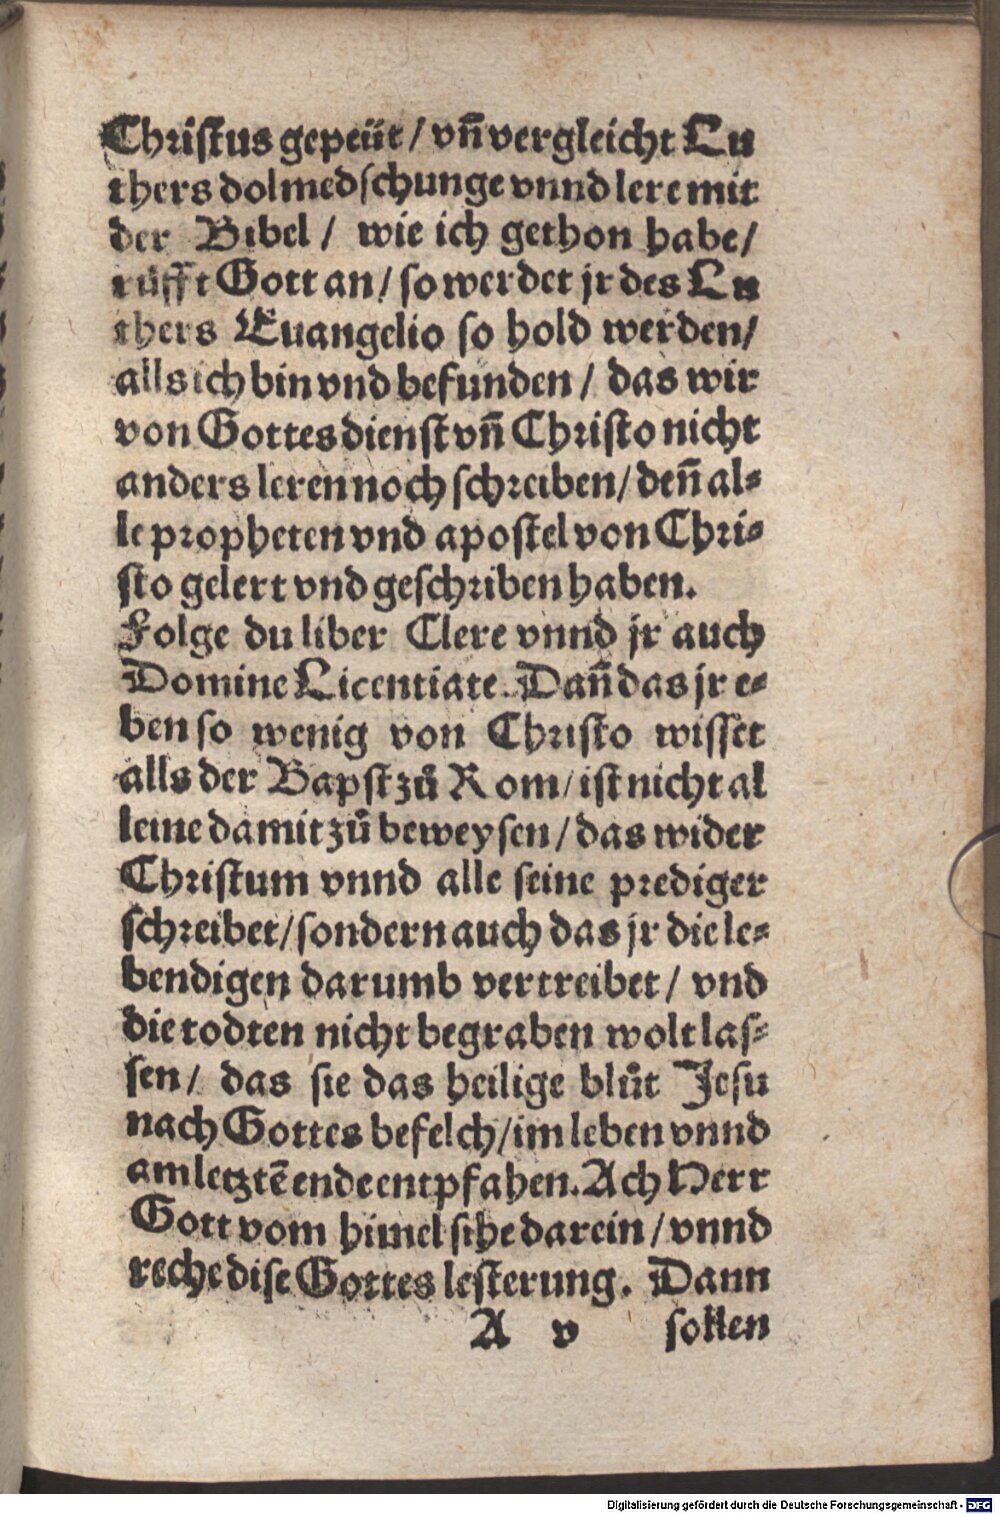 Christus gepeüt / vn̄ vergleicht Lu
thers dolmedschunge vnnd lere mit
der Bibel / wie ich gethon habe /
rüfft Gott an / so werdet jr des Lu
thers Euangelio so hold werden /
alls ich bin vnd befunden / das wir
von Gottes dienst vn̄ Christo nicht
anders leren noch schreiben / den̄ al⸗
le propheten vnd apostel von Chri⸗
sto gelert vnd geschriben haben.
Folge du liber Clere vnnd jr auch
Domine Licentiate. Dan̄ das jr e⸗
ben so wenig von Christo wisset
alls der Bapst zuͦ Rom / ist nicht al
leine damit zuͦ beweysen / das wider
Christum vnnd alle seine prediger
schreibet / sondern auch das jr die le⸗
bendigen darumb vertreibet / vnd
die todten nicht begraben wolt las⸗
sen / das sie das heilige bluͦt Jesu
nach Gottes befelch / im leben vnnd
am letztē ende entpfahen. Ach Herr
Gott vom himel sihe darein / vnnd
reche dise Gottes lesterung. Dann
A v sollen
Digitalisierung gefördert durch die Deutsche Forschungsgemeinschaft - DFG